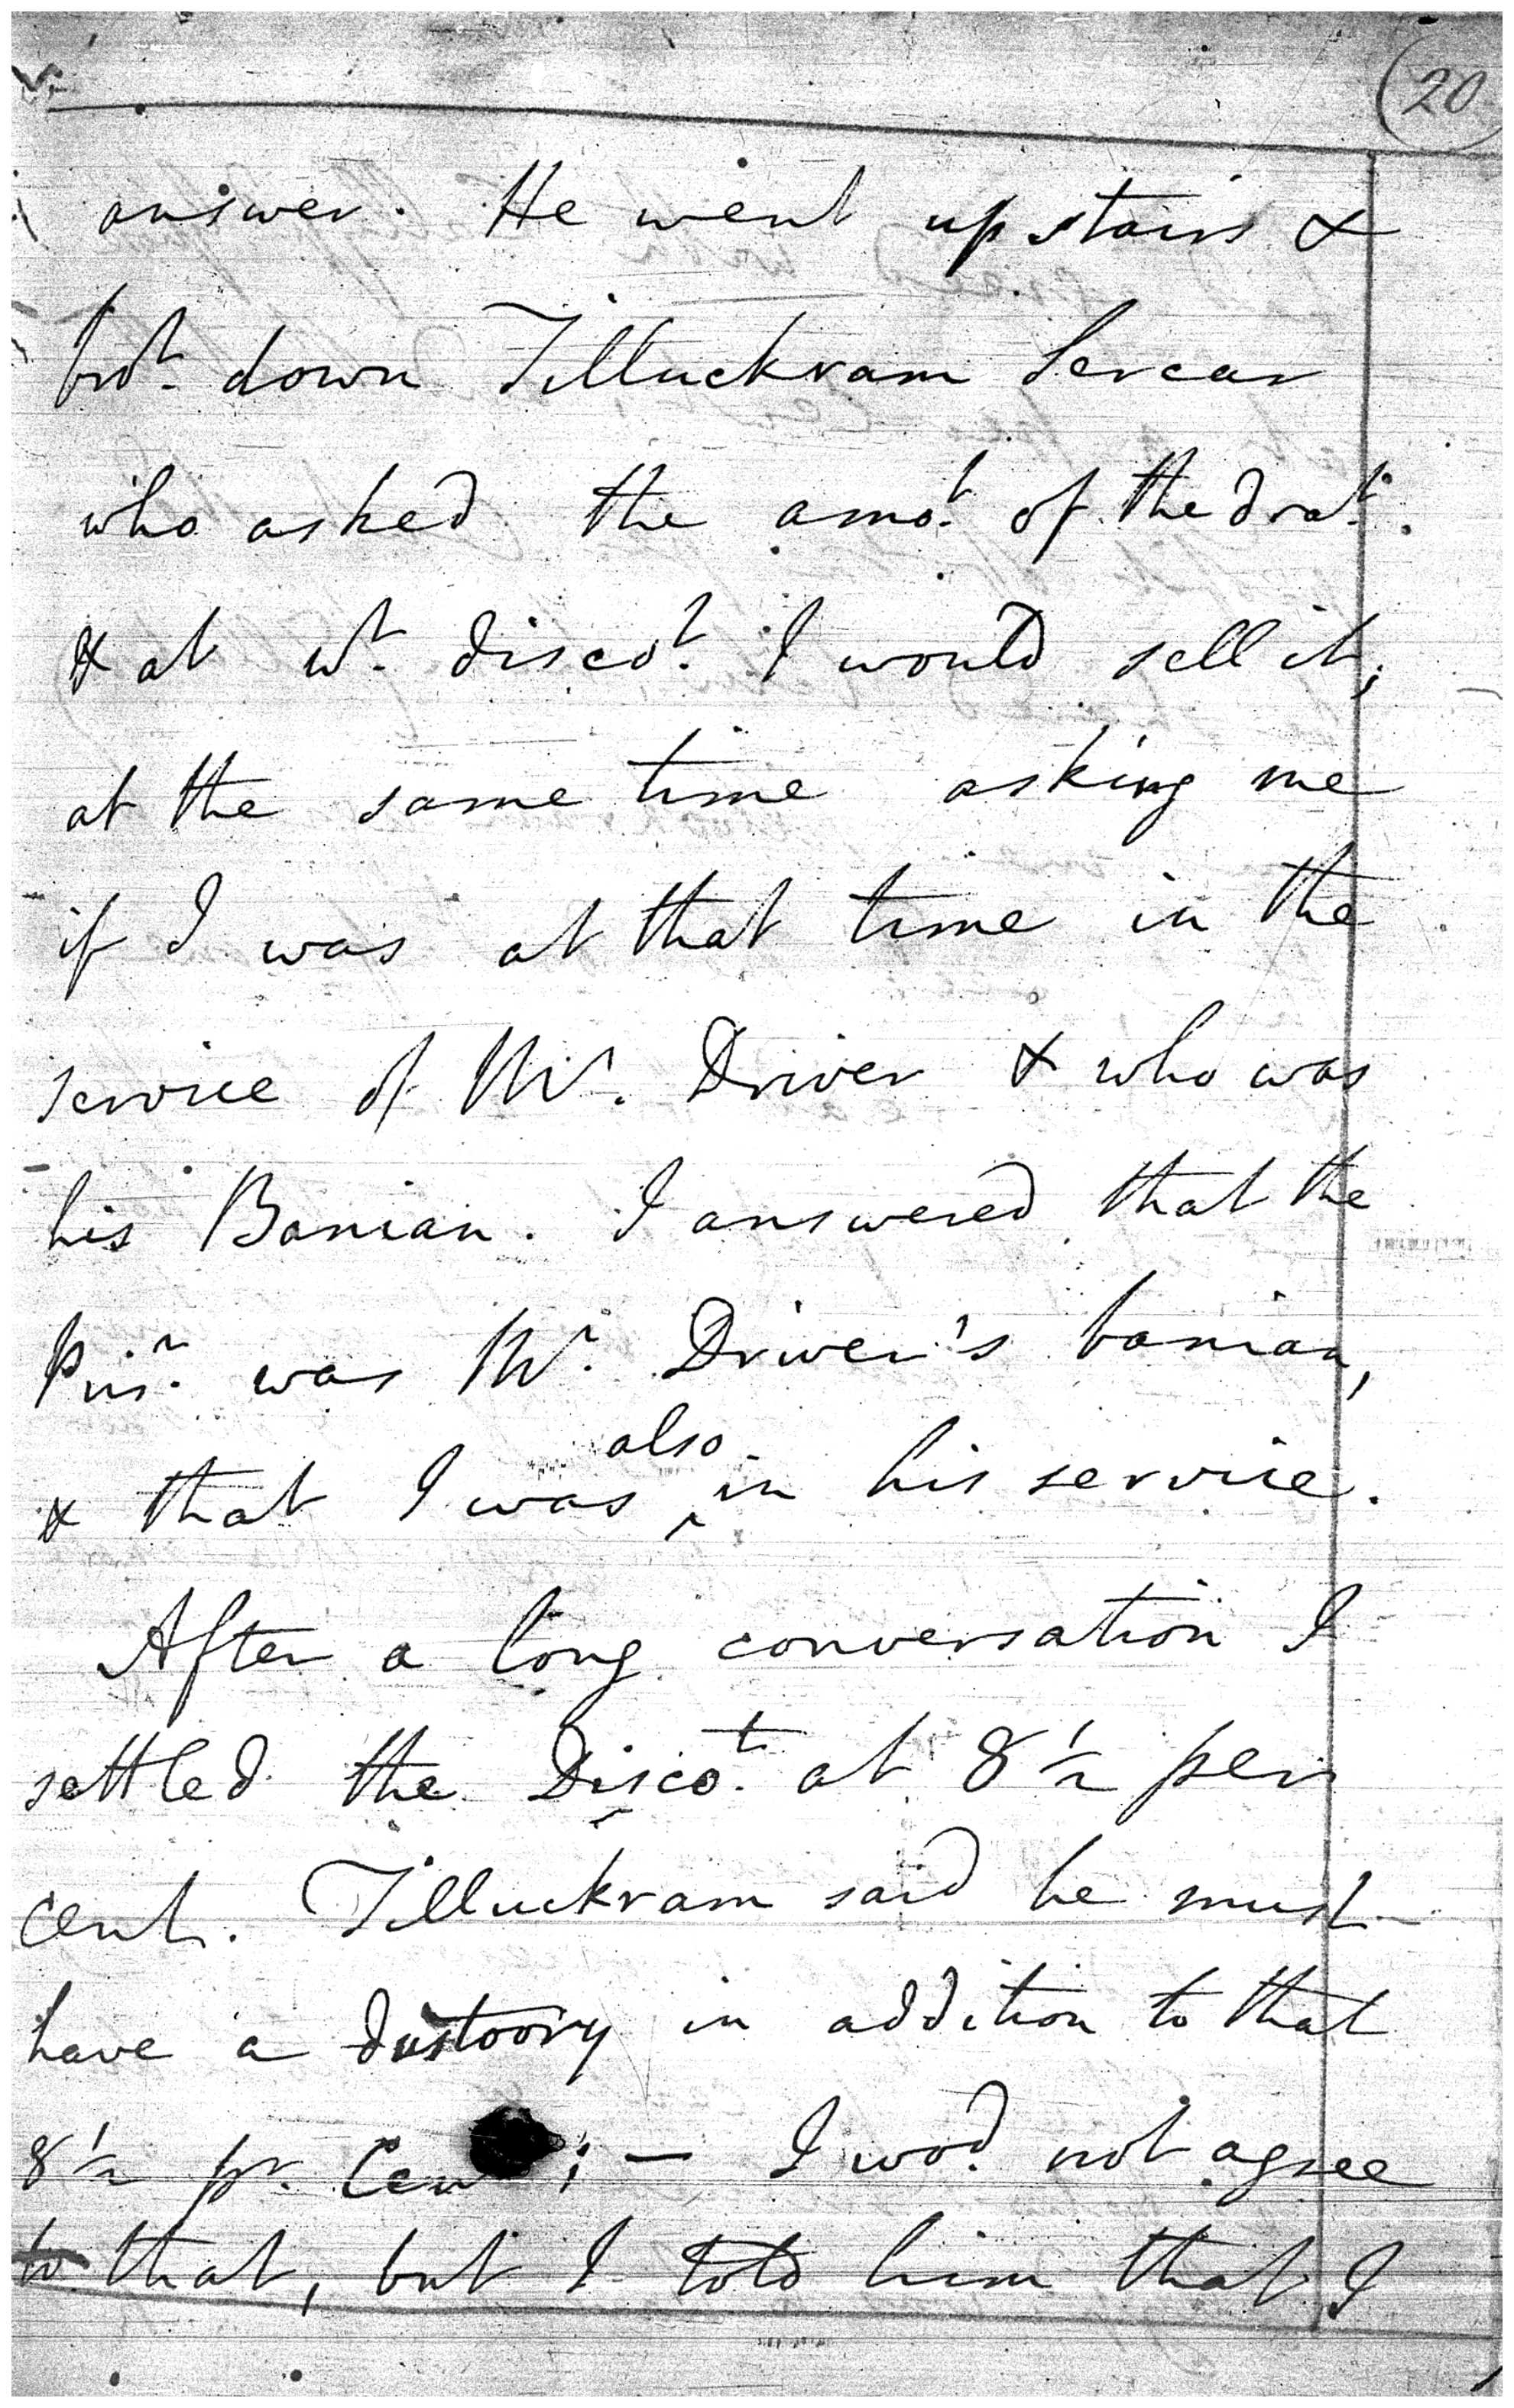 (20)
answer. He went up stairs &
brot. down Tilluckram Sercar
who asked the amot. of the drat.
& at wt. discot. I would sell it;
at the same time asking me
if I was at that time in the
service of Mr. Driver & who was
his Banian. I answered that the
Prisr. was Mr. Driver's banian,
also
& that I was ‸ in his service.
After a long conversation I
settled the Discot. at 8 ½ per
cent. Tilluckram said he must
have a dustoory in addition to that
8 ½ pr. Cent; — I wod. not agree
to that, but I told him that I